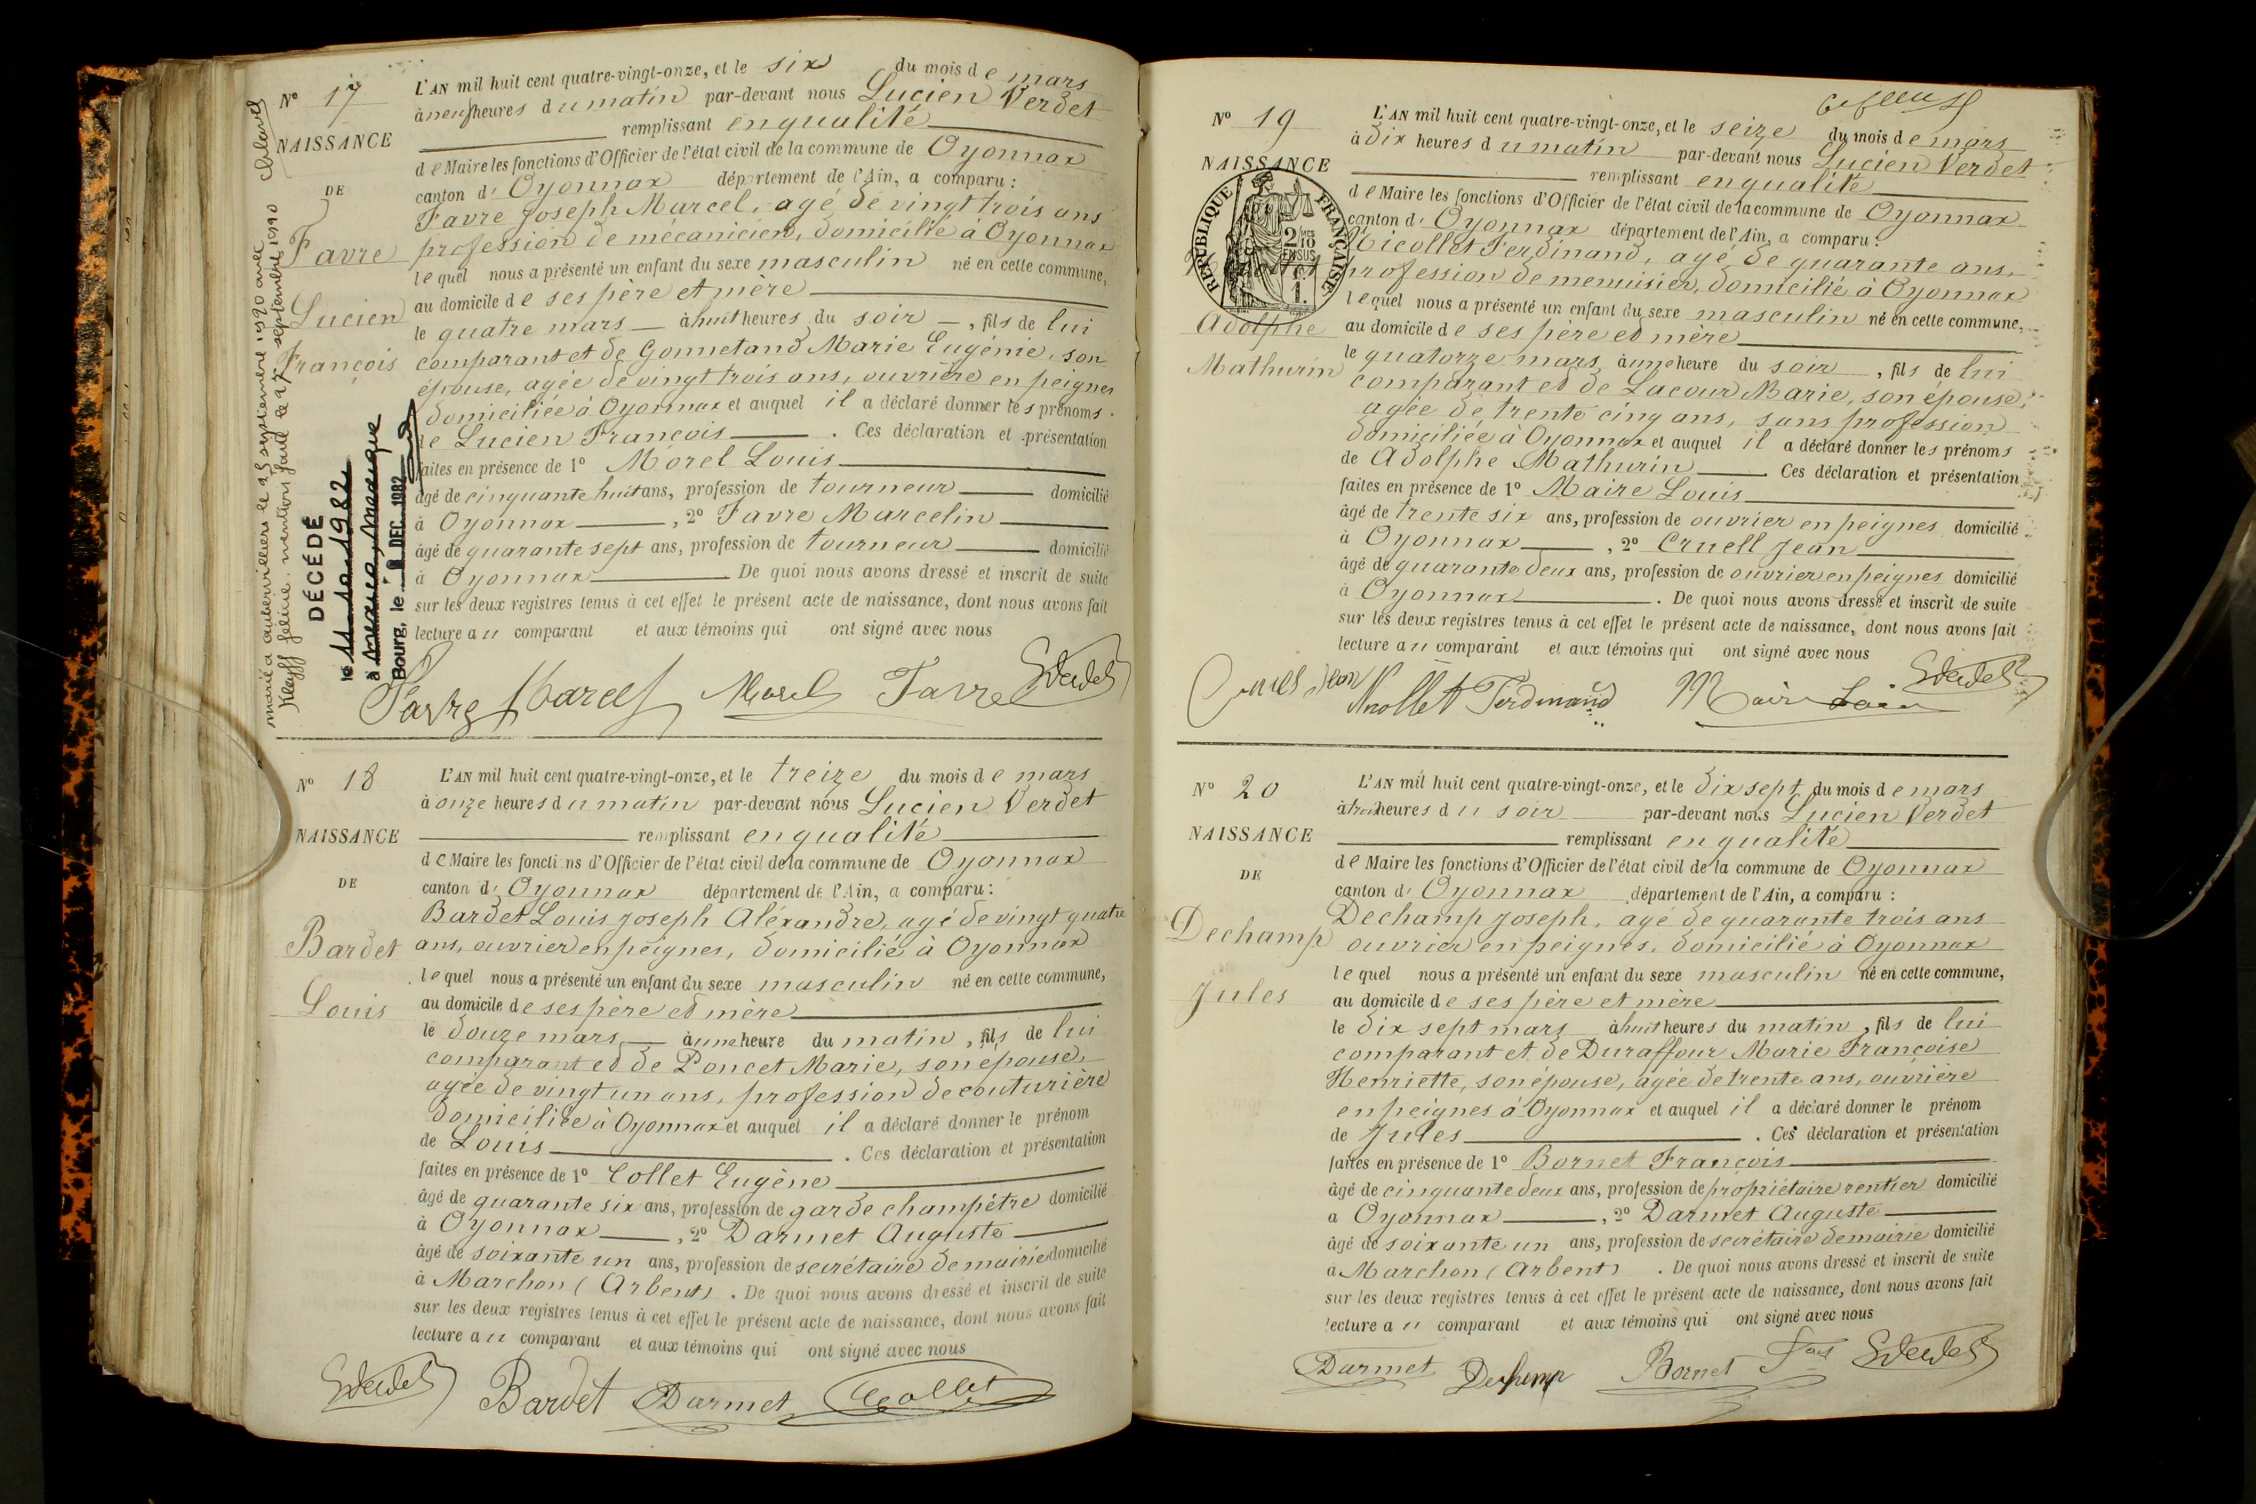 No 17
NAISSANCE
DE
Favre
Lucien
François
marié à Aubervilliers le 25 septembre 1920 avec
Kleyff Jeléine. mention faite le 27 septembre 1920
DÉCÉDÉ
le 11-10-1982
à
Bourg, le 8 DEC. 1982
L'AN mil huit cent quatre-vingt-onze, et le six du mois de mars
à neuf heures du matin par-devant nous Lucien Verdet
remplissant en qualité
de Maire les fonctions d'Officier de l'état civil de la commune de Oyonnax
canton d' Oyonnax département de l'Ain, a comparu :
Favre Joseph Marcel, agé de vingt trois ans
profession de mécanicien, domicilié à Oyonnax
lequel nous a présenté un enfant du sexe masculin né en cette commune,
au domicile de ses père et mère
le quatre mars à huit heures du soir, fils de lui
comparant et de Gonnetand Marie Eugénie, son
épouse, agée de vingt trois ans, ouvrière en peignes
domiciliée à Oyonnax et auquel il a déclaré donner les prénoms
de Lucien François. Ces déclaration et présentation
faites en présence de 1º Morel Louis
âgé de cinquante huit ans, profession de tourneur domicilié
à Oyonnax, 2º Favre Marcelin
âgé de quarante sept ans, profession de tourneur domicilié
à Oyonnax De quoi nous avons dressé et inscrit de suite
sur les deux registres tenus à cet effet le présent acte de naissance, dont nous avons fait
lecture au comparant et aux témoins qui ont signé avec nous
Favre Marcel Morel Favre LVerdet
No 18
NAISSANCE
DE
Bardet
Louis
L'AN mil huit cent quatre-vingt-onze, et le treize du mois de mars
à onze heures du matin par-devant nous Lucien Verdet
remplissant en qualité
de Maire les fonctions d'Officier de l'état civil de la commune de Oyonnax
canton d' Oyonnax département de l'Ain, a comparu :
Bardet Louis Joseph Aléxandre, agé de vingt quatre
ans, ouvrier en peignes, domicilié à Oyonnax
lequel nous a présenté un enfant du sexe masculin né en cette commune,
au domicile de ses père et mère
le douze mars à une heure du matin, fils de lui
comparant et de Poncet Marie, son épouse,
agée de vingt un ans, profession de couturière
domiciliée à Oyonnax et auquel il a déclaré donner le prénom
de Louis. Ces déclaration et présentation
faites en présence de 1º Collet Eugène
âgé de quarante six ans, profession de garde champêtre domicilié
à Oyonnax, 2º Darmet Auguste
âgé de soixante un ans, profession de secrétaire de mairie domicilié
à Marchon (Arbent). De quoi nous avons dressé et inscrit de suite
sur les deux registres tenus à cet effet le présent acte de naissance, dont nous avons fait
lecture au comparant et aux témoins qui ont signé avec nous
LVerdet Bardet Darmet Collet
No 19
NAISSANCE
RÉPUBLIQUE FRANÇAISE
2/10 EN SUS
Adolphe
Mathurin
L'AN mil huit cent quatre-vingt-onze, et le seize du mois de mars
à dix heures du matin par-devant nous Lucien Verdet
remplissant en qualité
de Maire les fonctions d'Officier de l'état civil de la commune de Oyonnax
canton d' Oyonnax département de l'Ain, a comparu :
Nicollet Ferdinand, agé de quarante ans,
profession de menuisier, domicilié à Oyonnax
lequel nous a présenté un enfant du sexe masculin né en cette commune,
au domicile de ses père et mère
le quatorze mars, à une heure du soir, fils de lui
comparant et de Lacour Marie, son épouse,
agée de trente cinq ans, sans profession
domiciliée à Oyonnax et auquel il a déclaré donner les prénoms
de Adolphe Mathurin. Ces déclaration et présentation
faites en présence de 1º Maire Louis
âgé de trente six ans, profession de ouvrier en peignes domicilié
à Oyonnax, 2º Cruell Jean
âgé de quarante deux ans, profession de ouvrier en peignes domicilié
à Oyonnax. De quoi nous avons dressé et inscrit de suite
sur les deux registres tenus à cet effet le présent acte de naissance, dont nous avons fait
lecture au comparant et aux témoins qui ont signé avec nous
Cruell Jean Nicollet Ferdinand Maire Louis LVerdet
No 20
NAISSANCE
DE
Dechamp
Jules
L'AN mil huit cent quatre-vingt-onze, et le dix sept du mois de mars
à trois heures du soir par-devant nous Lucien Verdet
remplissant en qualité
de Maire les fonctions d'Officier de l'état civil de la commune de Oyonnax
canton d' Oyonnax département de l'Ain, a comparu :
Dechamp Joseph, agé de quarante trois ans
ouvrier en peignes, domicilié à Oyonnax
lequel nous a présenté un enfant du sexe masculin né en cette commune,
au domicile de ses père et mère
le dix sept mars à huit heures du matin, fils de lui
comparant et de Duraffour Marie Françoise
Henriette, son épouse, agée de trente ans, ouvrière
en peignes à Oyonnax et auquel il a déclaré donner le prénom
de Jules. Ces déclaration et présentation
faites en présence de 1º Bornet François
âgé de cinquante deux ans, profession de propriétaire rentier domicilié
a Oyonnax, 2º Darmet Auguste
âgé de soixante un ans, profession de secrétaire de mairie domicilié
à Marchon (Arbent). De quoi nous avons dressé et inscrit de suite
sur les deux registres tenus à cet effet le présent acte de naissance, dont nous avons fait
lecture au comparant et aux témoins qui ont signé avec nous
Darmet Dechamp Bornet Fois LVerdet